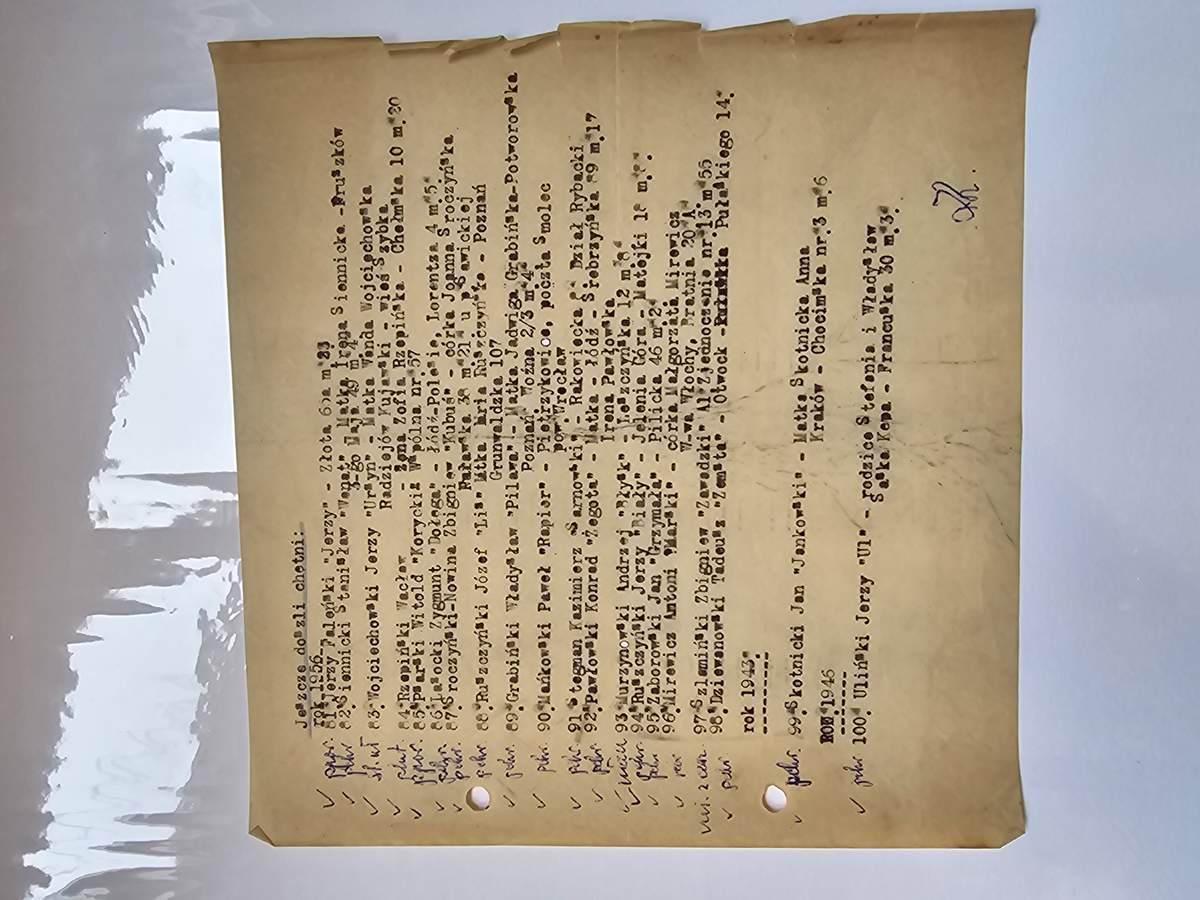 Jeszcze doszli chętni:
rok 1956
81. Jerzy Paleński "Jerzy" - Złota 65a m 23
82. Siennicki Stanisław "Wenat" Matka Irena Siennicka - Pruszków
3-go Maja 49 m 4
83. Wojciechowski Jerzy "Uryn" - Matka Wanda Wojciechowska
Radziejów Kujawski - wieś Szybka
84. Rzepiński Wacław - żona Zofia Rzepińska - Chełmska 10 m. 20
85. Psarski Witold "Korycki" Wspólna nr. 37
86. Lasocki Zygmunt "Dołęga" Łódź-Polesie, Lorentza 4 m. 5
87. Sroczyński-Nowina Zbigniew "Kubuś" - córka Joanna Sroczyńska
Puławska 38 m 21 u p Sawickiej
88. Ruszczyński Józef "Lis" Matka Maria Ruszczyńska - Poznań
Grunwaldzka 107
89. Grabiński Władysław "Pilawa" - Matka Jadwiga Grabińska-Potworowska
Poznań Woźna 2/3 m 4
90. Mańkowski Paweł "Rapier" - Pietrzykowice, poczta Smolec
pow. Wrocław
91. Stegman Kazimierz "Sarnowski" - Rakowiecka Dział Rybacki
92. Pawłowski Konrad "Żegota" - Matka - Łódź - Srebrzyńska 89 m. 17
Irena Pawłowska
93. Murzynowski Andrzej "Błysk" - Leszczyńska 12 m 8
94. Ruszczyński Jerzy "Biały" - Jelenia Góra - Matejki 18 m.
95. Zaborowski Jan "Grzymała" - Pilicka 46 m 2
96. Mirewicz Antoni "Marski" - córka Małgorzata Mirewicz
W-wa Włochy, Bratnia 20 A
97. Szlemiński Zbigniew "Zawadzki" Al Zjednoczenie nr 13 m 55
98. Dziewanowski Tadeusz "Zemsta" - Otwock - Pułaskiego 14.
rok 1943.
99. Skotnicki Jan "Jankowski" - Matka Skotnicka Anna
Kraków - Chocimska nr. 3 m. 6
ROK 1946
100. Uliński Jerzy "Ul" - rodzice Stefania i Władysław
Saska Kępa - Francuska 30 m. 3